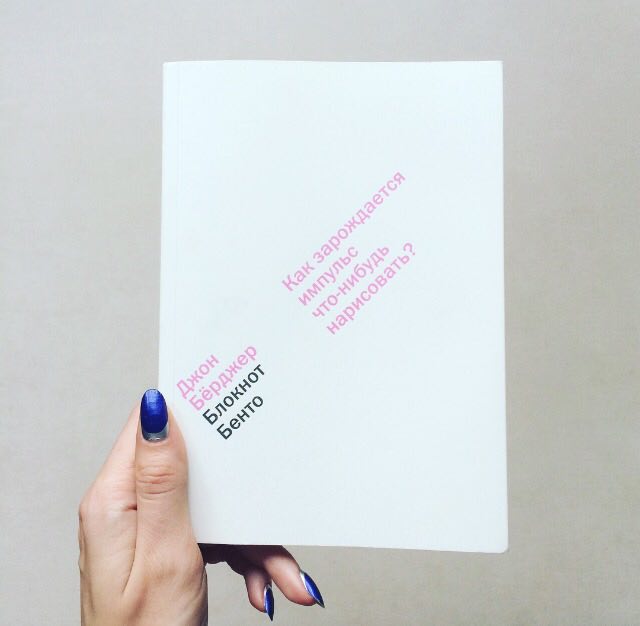 Как зарождается
импульс
что-нибудь
нарисовать?
Джон
Бёрджер
Блокнот
Бенто